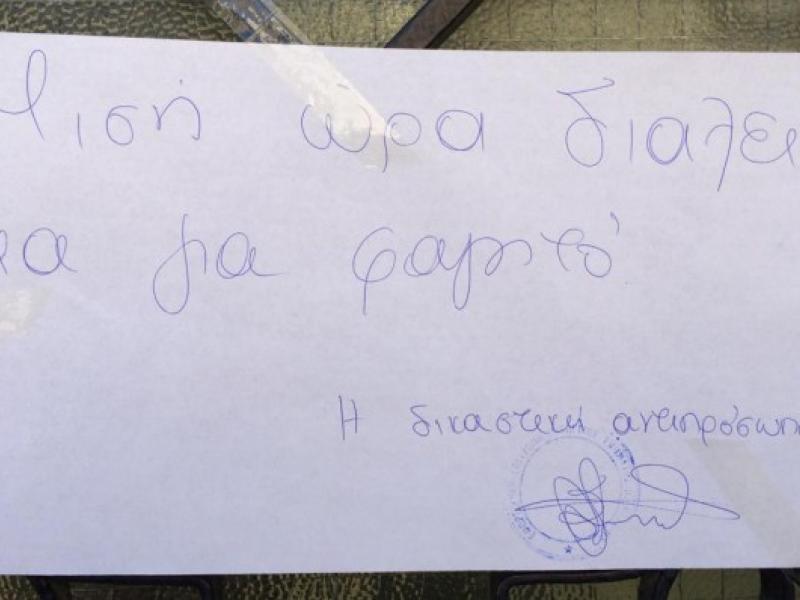 Μισή ώρα διαλει
μα για φαγητό
Η δικαστική αντιπρόσωπ